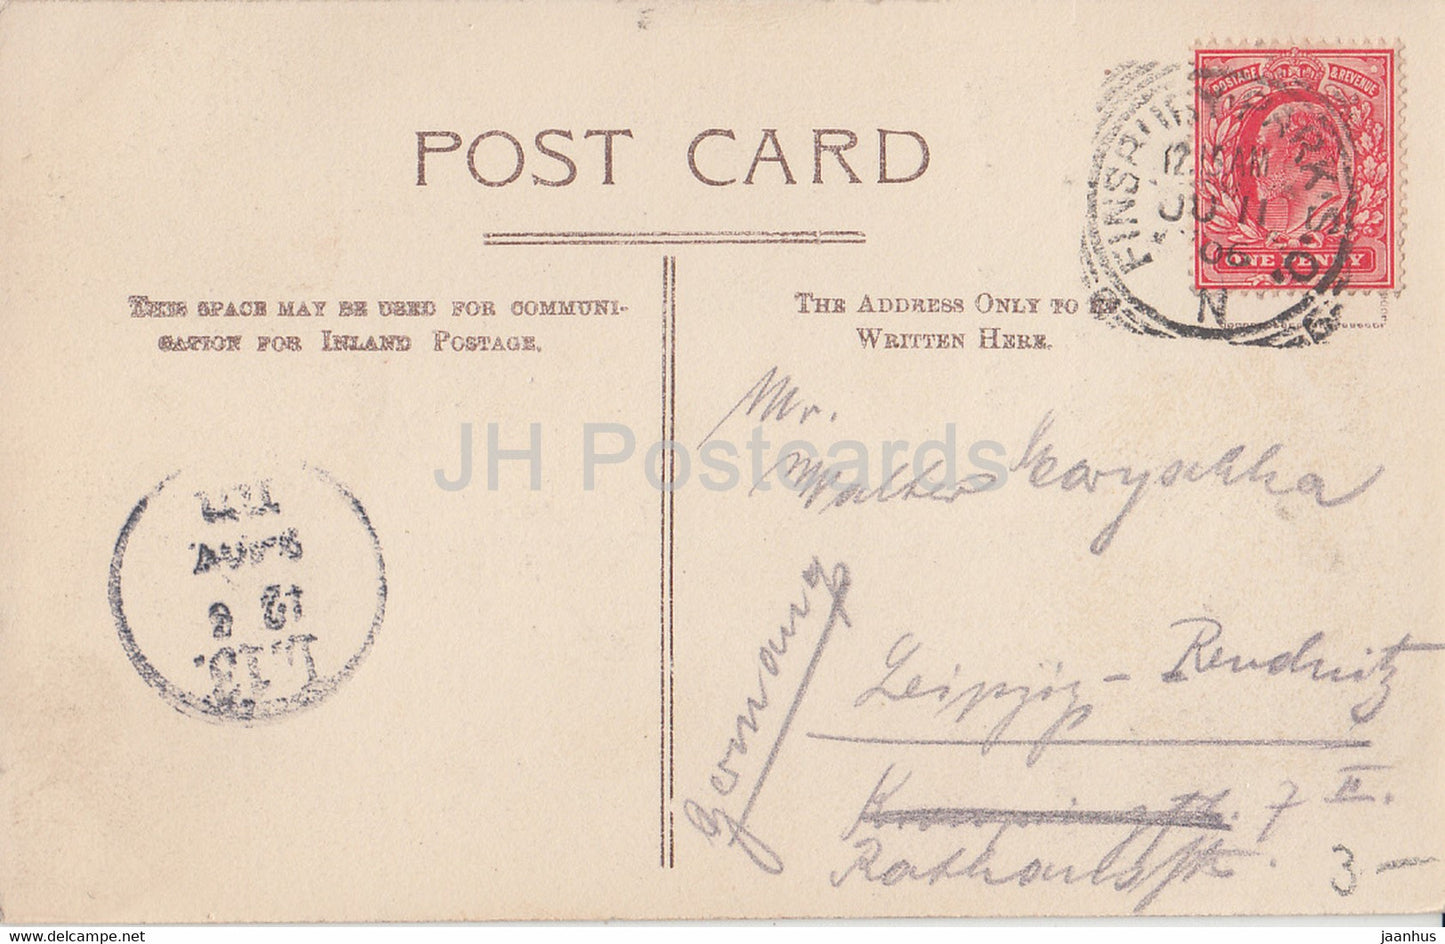 POST CARD
THIS SPACE MAY BE USED FOR COMMUNI-
CATION FOR INLAND POSTAGE.
THE ADDRESS ONLY TO BE
WRITTEN HERE.
POSTAGE & REVENUE
ONE PENNY
FINSBURY PARK.S.O.
12.15AM
11
06
N
JH Postcards
Mr.
Walter
Leipzig - Reudnitz
7 II.
Rathausstr.
Germany
12 6
3 -
www.delcampe.net
jaanhus